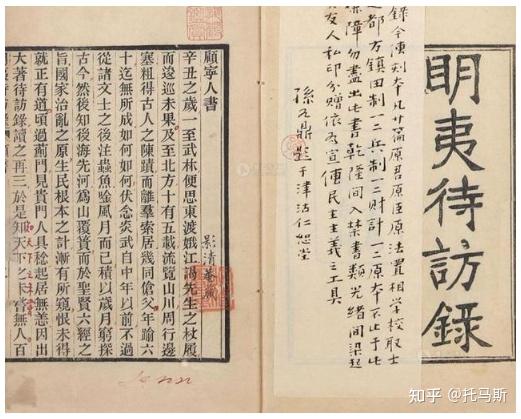 明夷待訪錄
錄今傳刻本凡廿篇原君原臣原法置相學校取士
建都方鎮田制一二兵制一二財計一二原本不止于此
障勿盡出也書乾隆間入禁書類光緒間梁起
友人私印分贈依爲宣傳民主主義之工具
孫元鼎題于津沽仁恕堂
顧寧人書
辛丑之歲一至武林便思東渡娥江謁先生之杖履
而逡巡未果及至北方十有五載流覽山川周行邊
塞粗得古人之陳蹟而離羣索居幾同傖父年踰六
十迄無所成如何如何伏念炎武自中年以前不過
從諸文士之後注蟲魚吟風月而已積以歲月窮探
古今然後知後海先河爲山覆簣而於聖賢六經之
旨國家治亂之原生民根本之計漸有所窺恨未得
就正有道頃過薊門見貴門人具稔起居無恙因出
大著待訪錄讀之再三於是知天下之未嘗無人百
知乎 @托马斯